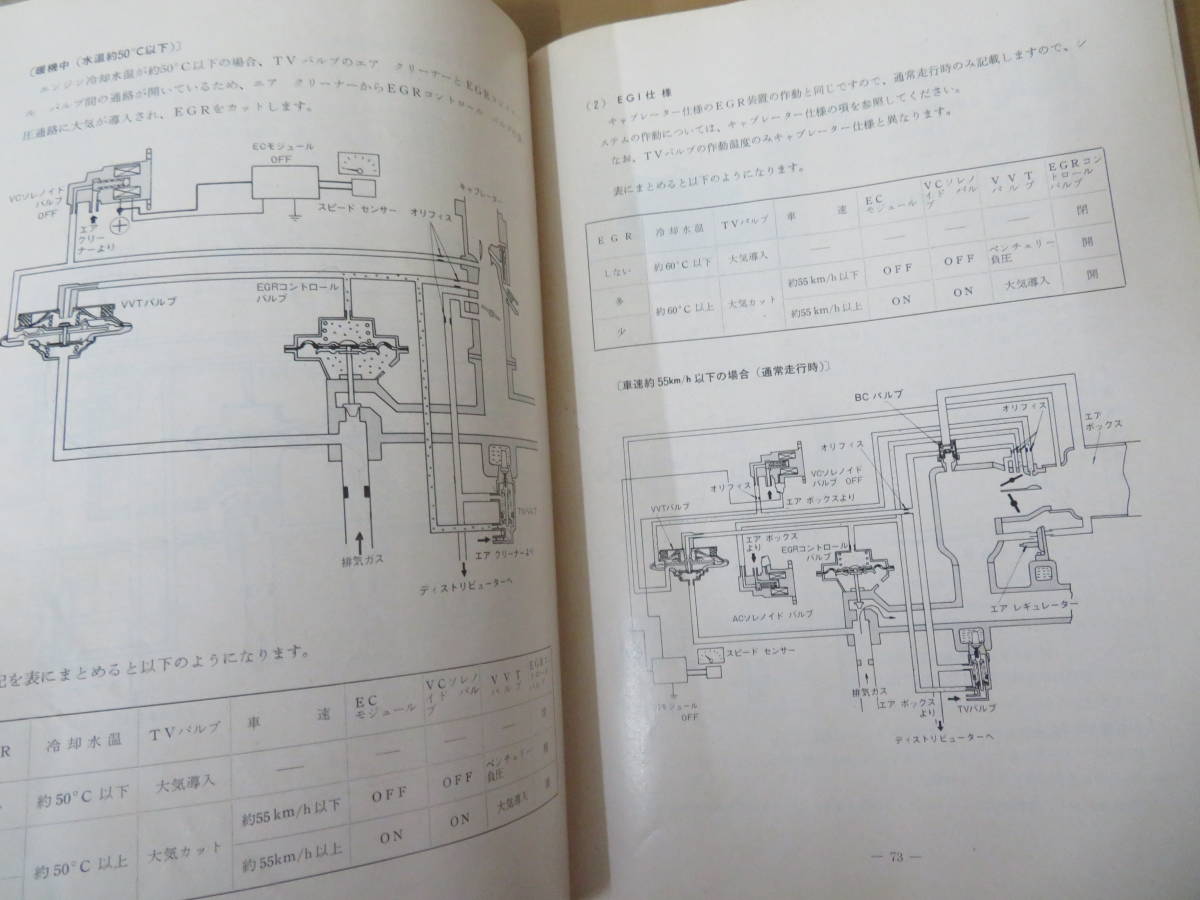 〔暖機中(水温約50℃以下)〕
エンジン冷却水温が約50℃以下の場合、TVバルブのエア クリーナーとEGRコントロー
ル バルブ間の通路が開いているため、エア クリーナーからEGRコントロール バルブの負
圧通路に大気が導入され、EGRをカットします。
ECモジュール
OFF
VCソレノイド
バルブ
OFF
スピード センサー
エア
クリー
ナーより
オリフィス
キャブレーター
VVTバルブ
EGRコントロール
バルブ
TVバルブ
エア クリーナーより
排気ガス
ディストリビューターへ
記を表にまとめると以下のようになります。
R 冷却水温 TVバルブ 車 速 EC
モジュール VCソレノ
イド バル
ブ VVT
バルブ EGRコン
トロール
バルブ
約50℃以下 大気導入 —— —— —— —— 閉
約50℃以上 大気カット 約55km/h以下 OFF OFF ベンチュリー
負圧 開
約55km/h以上 ON ON 大気導入 開
(2) EGI仕様
キャブレーター仕様のEGR装置の作動と同じですので、通常走行時のみ記載しますので、シ
ステムの作動については、キャブレーター仕様の項を参照してください。
なお、TVバルブの作動温度のみキャブレーター仕様と異なります。
表にまとめると以下のようになります。
EGR 冷却水温 TVバルブ 車 速 EC
モジュール VCソレノ
イド バル
ブ VVT
バルブ EGRコン
トロール
バルブ
しない 約60℃以下 大気導入 —— —— —— —— 閉
多 約60℃以上 大気カット 約55km/h以下 OFF OFF ベンチェリー
負圧 開
少 約55km/h以上 ON ON 大気導入 開
〔車速約55km/h以下の場合(通常走行時)〕
BC バルブ
オリフィス
エア
ボックス
オリフィス
VCソレノイド
バルブ OFF
オリフィス
エア ボックスより
VVTバルブ
エア ボックス
より
EGRコントロール
バルブ
ACソレノイド バルブ
エア レギュレーター
スピード センサー
モジュール
OFF
排気ガス
エア ボックス
より
TVバルブ
ディストリビューターへ
— 73 —